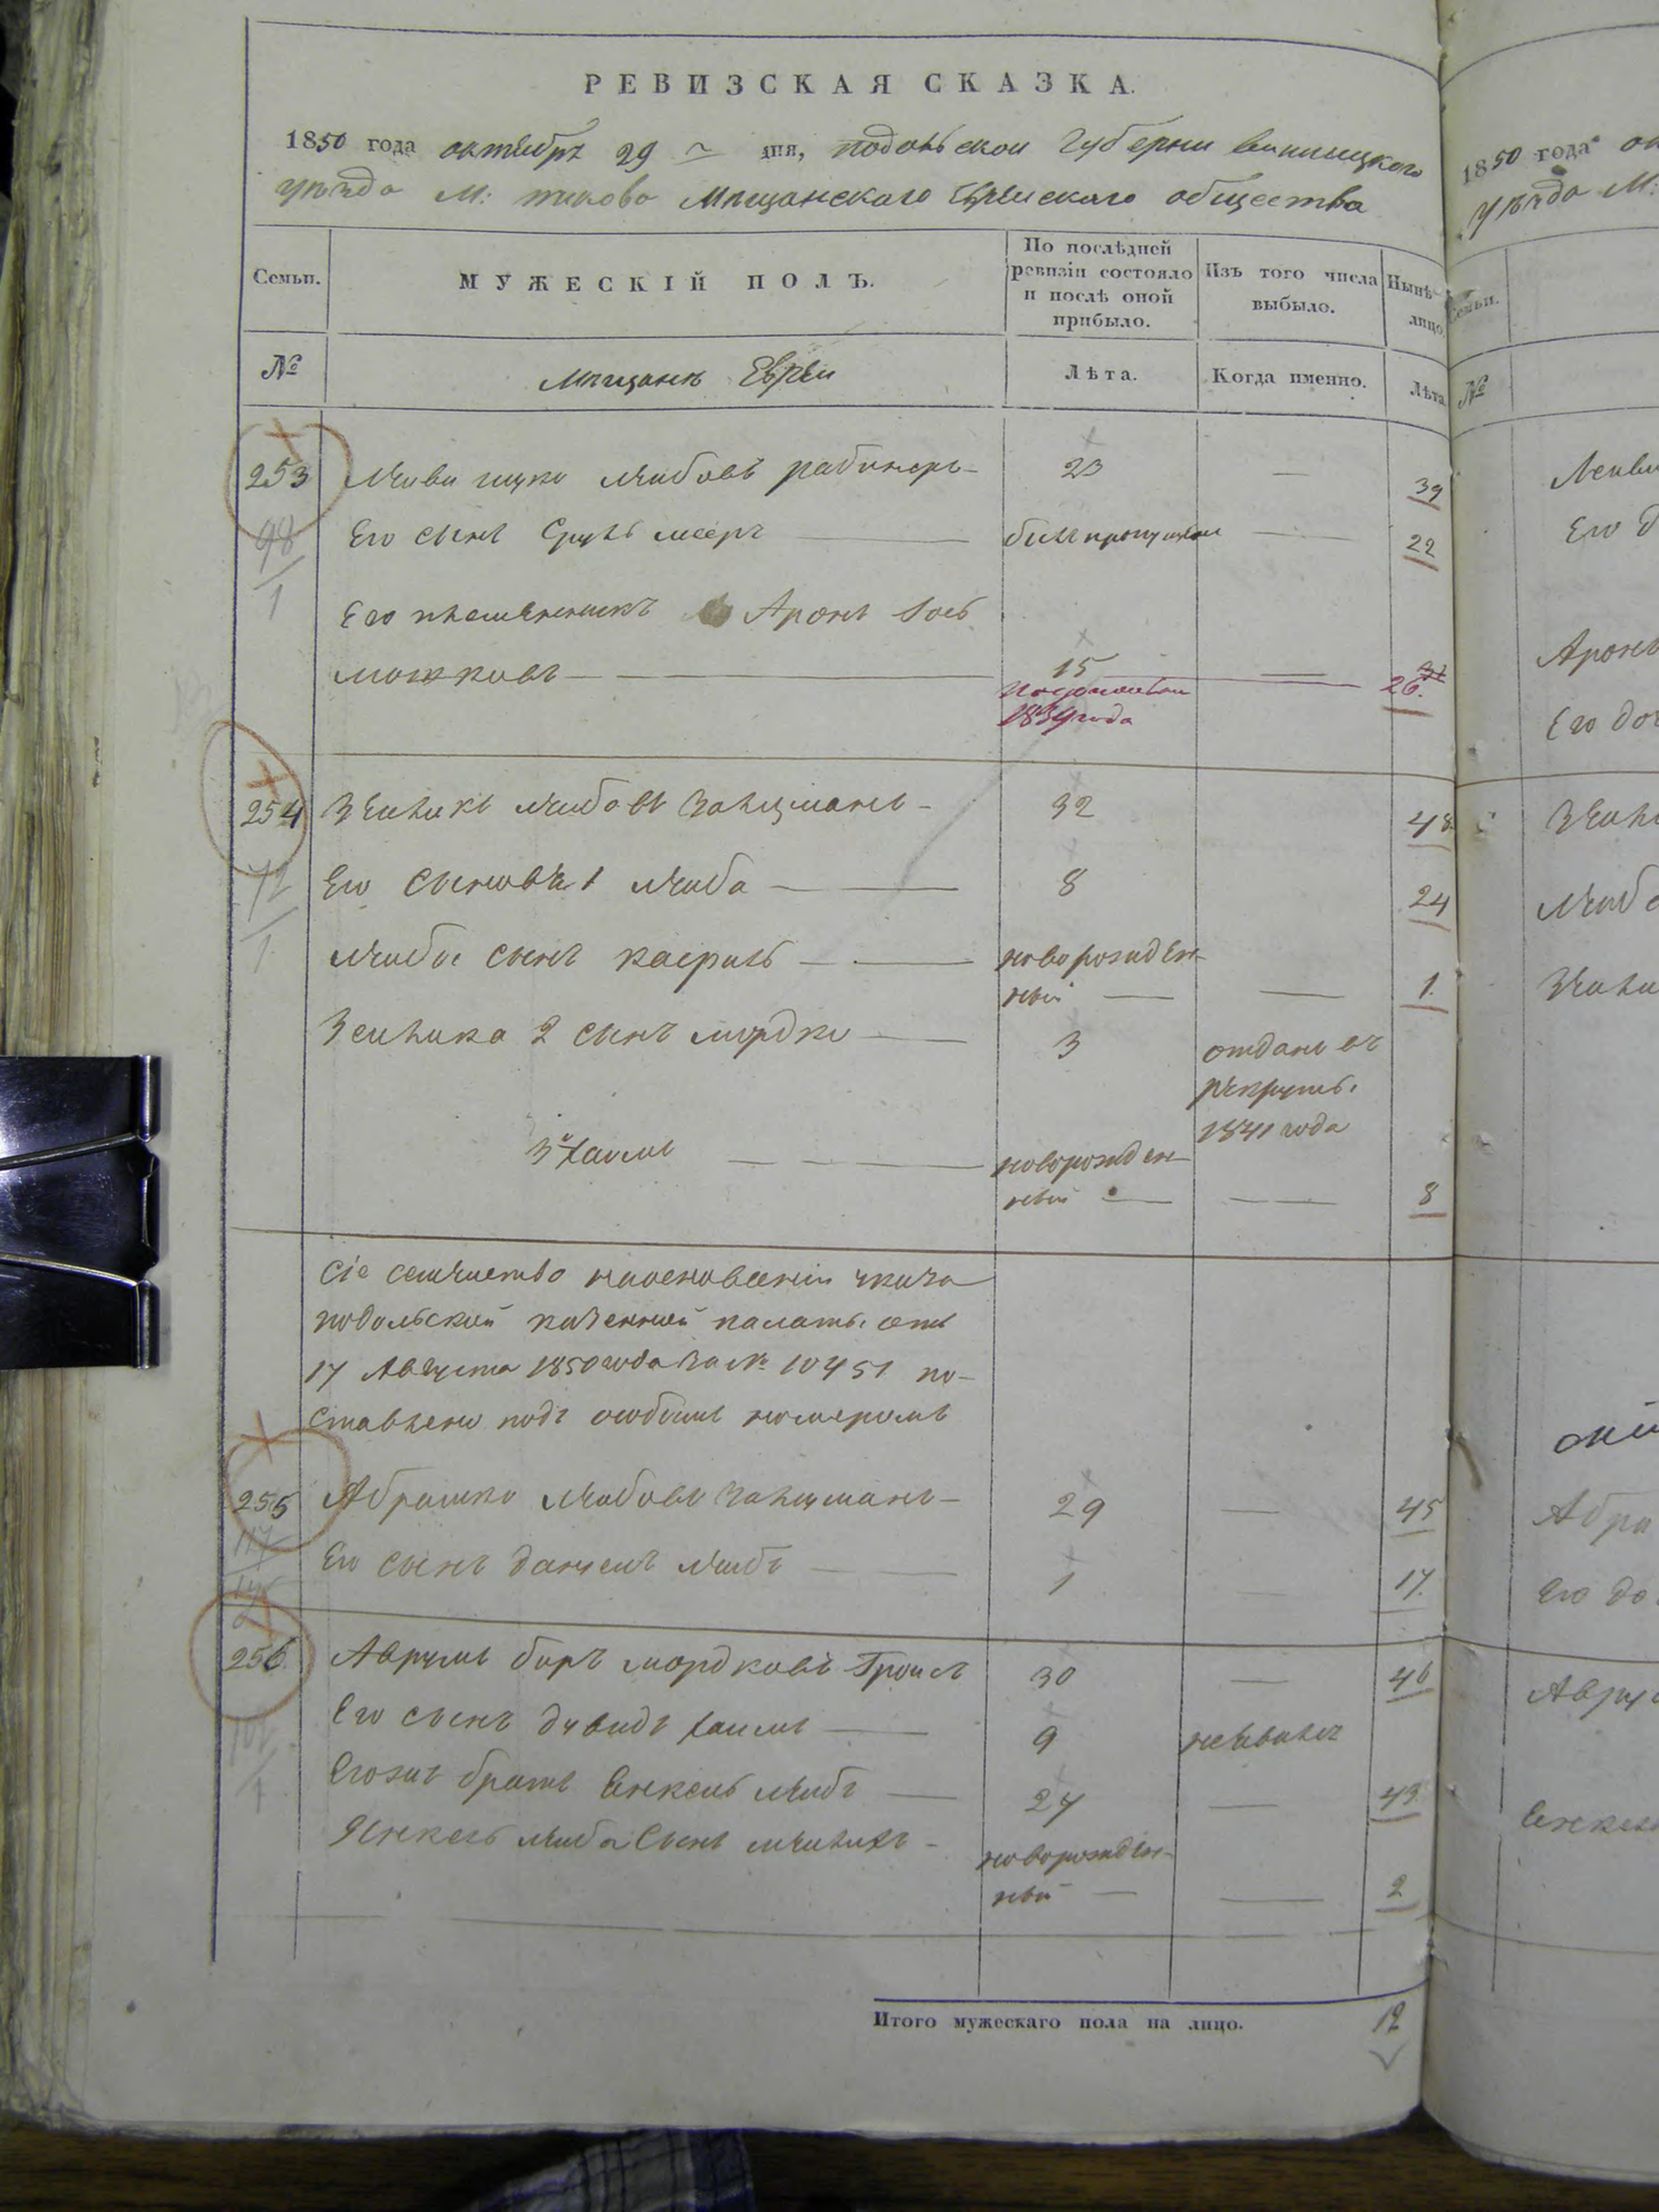 РЕВИЗСКАЯ СКАЗКА.
1850 года октября 29 дня, подольской губернии винницкого
уезда М: тиково Мещанского Еврейского общества
Семьи. МУЖЕСКІЙ ПОЛЪ. По послѣдней ревизіи состояло и послѣ оной прибыло. Изъ того числа выбыло. Нынѣ лицо
№ Мещанъ Евреи Лѣта. Когда именно. Лѣта
253 Лейви ицко Лейбовъ рабинеръ 23 — 39
98 Его сынъ Сруль мееръ был пропущен — 22
1
Его племенникъ Аронъ Иос
мошковъ 15 — 26
1834 года
254 Зейликъ Лейбовъ Зальцманъ 32 48
72 Его сыновья 1 Лейба 8 24
1 Лейбы сынъ касриль новорожден-
ный — — 1.
Зейлика 2 сынъ мордко 3 отданъ въ
рекруты
1841 года
3й хаимъ новорожден
ный — — 8
Сіе семейство наоснованіи указа
подольской казенной палаты отъ
17 Августа 1850 года за № 10451 по-
ставлено подъ особымъ номеромъ
255 Абрамко Лейбовъ Зальцманъ 29 — 45
117 Его сынъ даніелъ Лейбъ 1 — 17.
256 Аврумъ беръ мордковъ Гроисъ 30 — 46
Его сынъ дувидъ хаимъ 9 неявилъ
Егожъ братъ Енкель Лейбъ 27 — 43
1
Янкель Лейба сынъ мейлихъ новорожден-
ный — — 2
Итого мужескаго пола на лицо. 12
1850 года
уезда М:
Семьи.
№
Лейви
Его д
Аронъ
Его доч
Зейли
Лейба
Зейли
Абра
Его до
Авру
Енкель